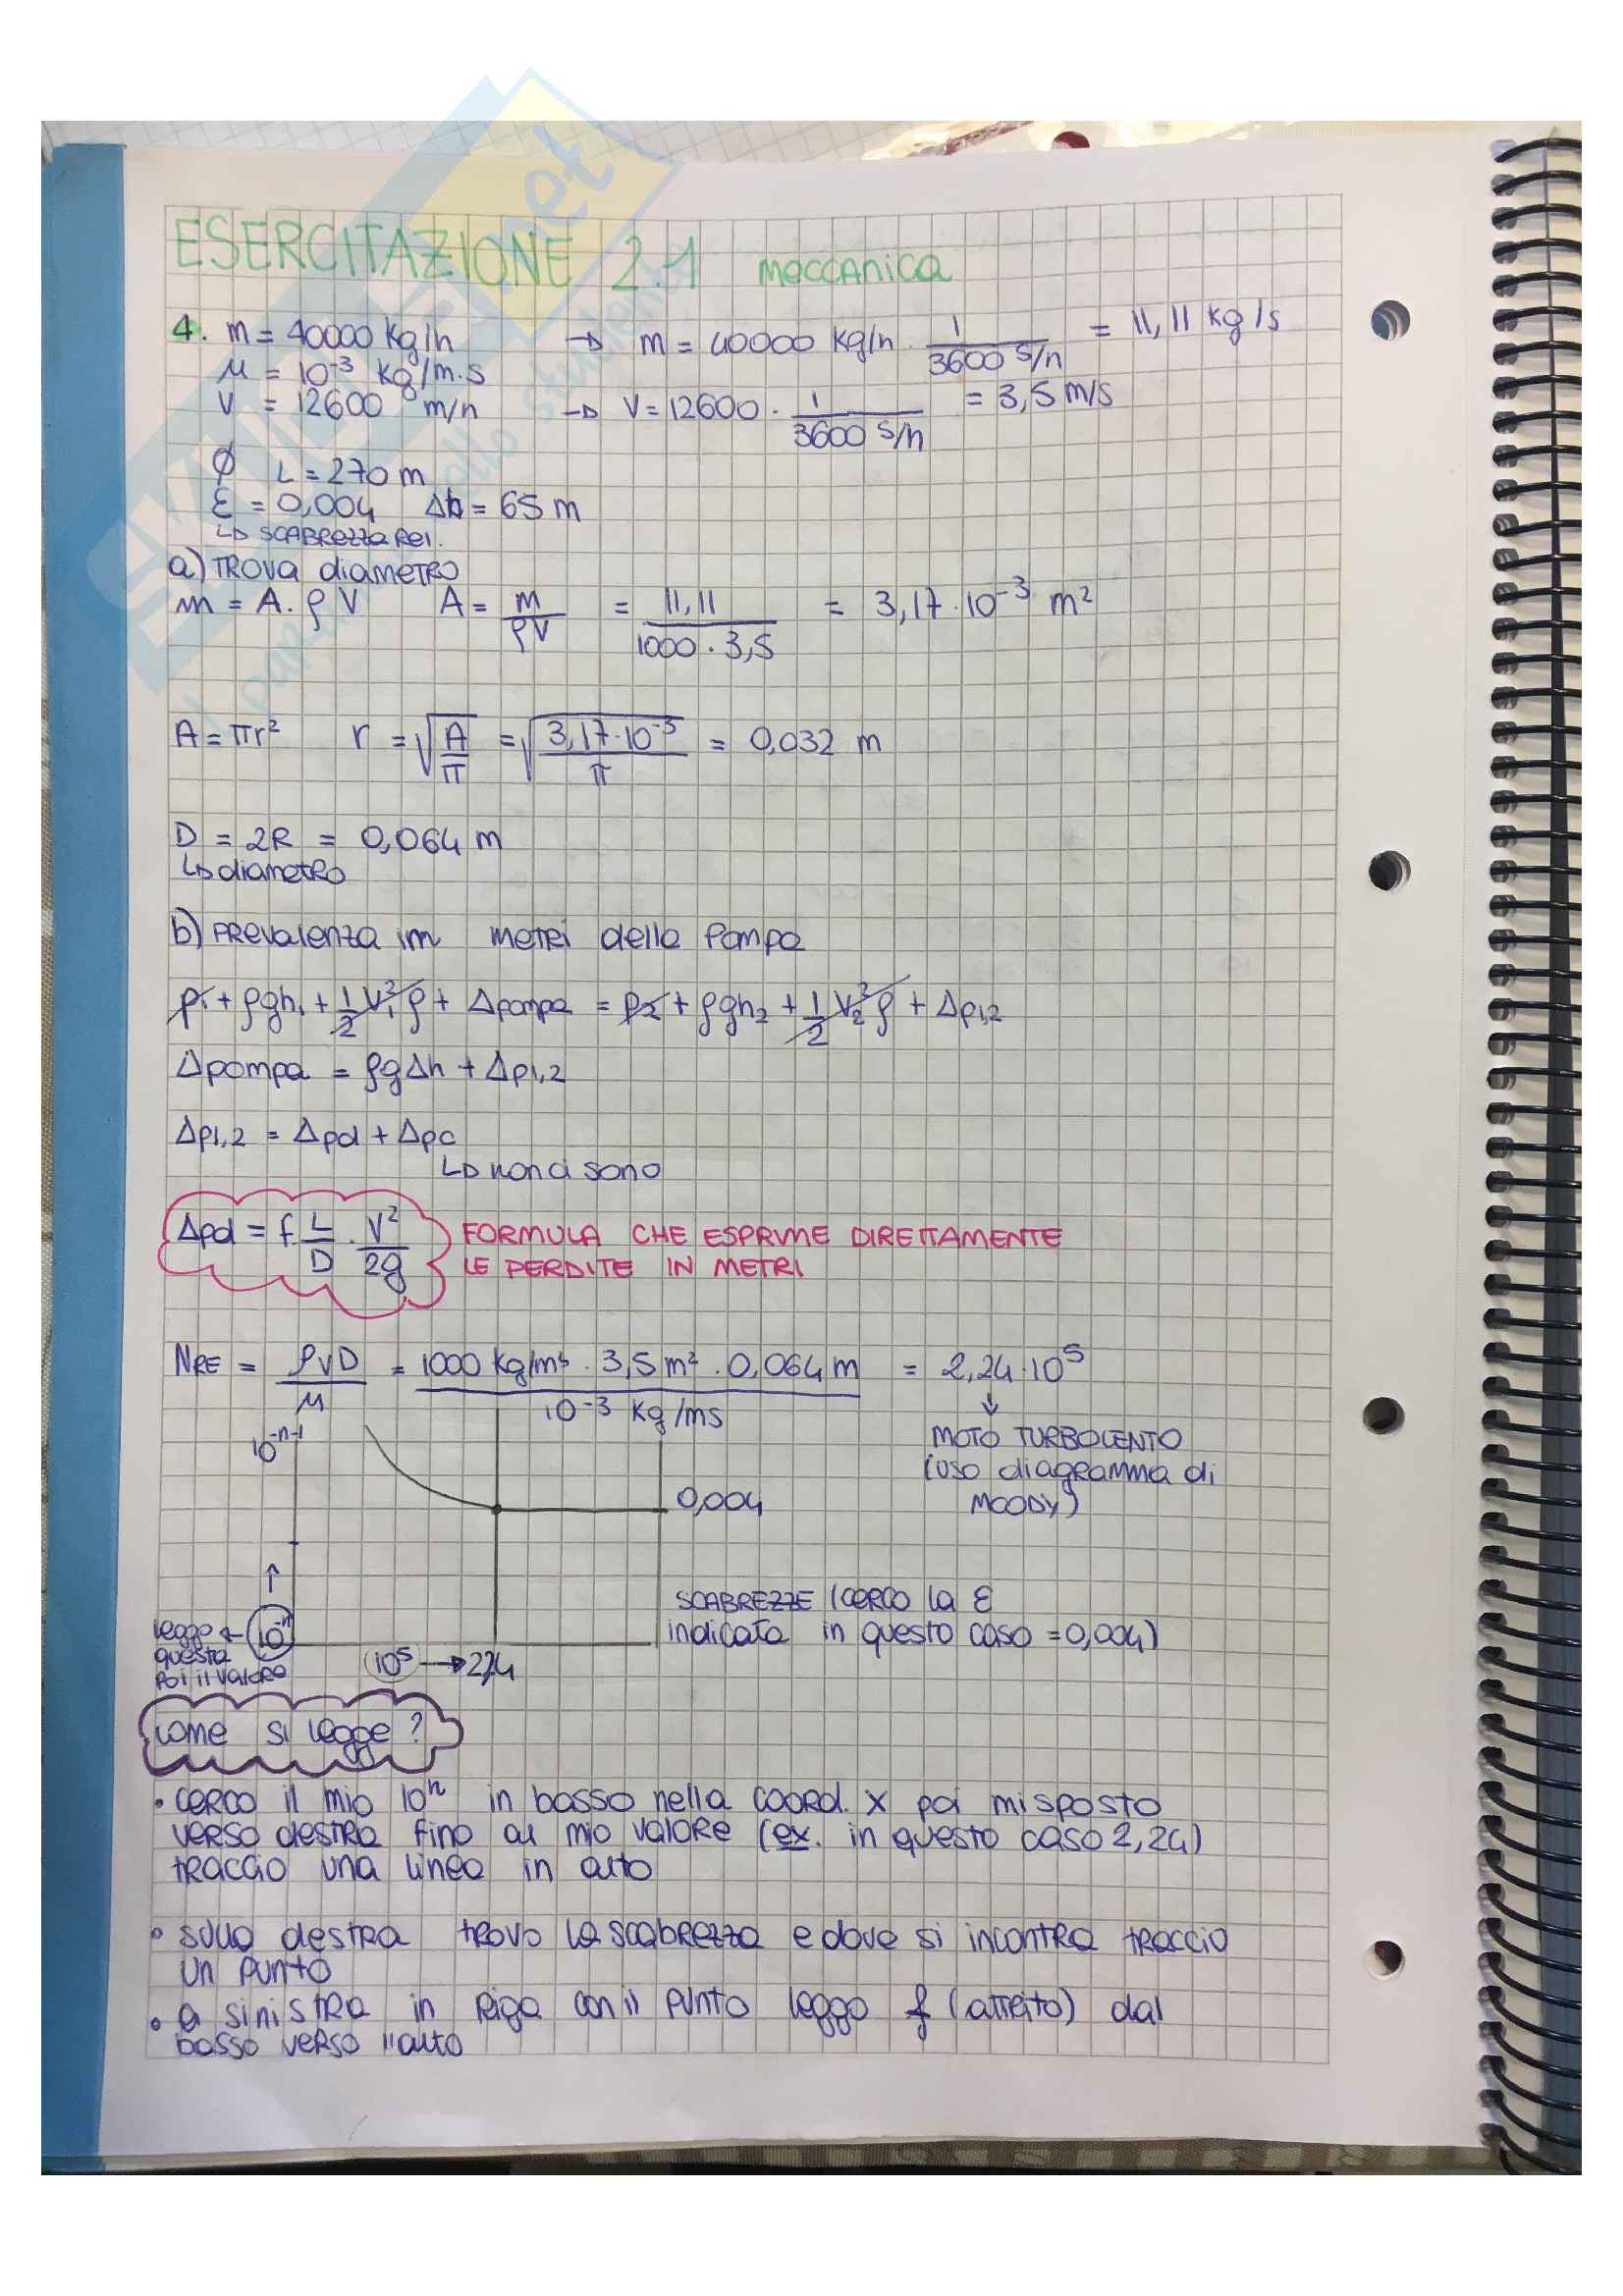 ESERCITAZIONE 2.1 meccanica
4. m = 40000 Kg/h → m = 40000 Kg/h · 1/3600 s/h = 11,11 kg/s
μ = 10⁻³ Kg/m·s
V = 12600 m/h → V = 12600 · 1/3600 s/h = 3,5 m/s
Ø L = 270 m
ε = 0,004 Δh = 65 m
↳ SCABREZZA REL.
a) TROVA diAMETRO
m = A·ρV A = m/ρV = 11,11/1000·3,5 = 3,17·10⁻³ m²
A = πr² r = √A/π = √3,17·10⁻³/π = 0,032 m
D = 2R = 0,064 m
↳ diametro
b) PREVALENZA im METRI della Pompa
p₁ + ρgh₁ + 1/2 V₁²ρ + Δpompa = p₂ + ρgh₂ + 1/2 V₂²ρ + Δp1,2
Δpompa = ρgΔh + Δp1,2
Δp1,2 = Δpd + Δpc
↳ non ci sono
Δpd = f·L/D·V²/2g FORMULA CHE ESPRIME DIRETTAMENTE
LE PERDITE IN METRI
NRE = ρvD/μ = 1000 Kg/m³ · 3,5 m² · 0,064 m / 10⁻³ Kg/ms = 2,24·10⁵
↓
MOTO TURBOLENTO
(USO diagramma di
MOODY)
10⁻ⁿ⁻¹
0,004
SCABREZZE (CERCO LA ε
indicata in questo caso = 0,004)
leggo ← 10⁻ⁿ
questa
poi il valore
10⁵ → 2,24
come si legge?
• CERCO il mio 10ⁿ in basso nella coord. x poi mi sposto
VERSO destra fino al mio valore (ex. in questo caso 2,24)
traccio una linea in alto
• sulla destra trovo la scabrezza e dove si incontra traccio
un punto
• a sinistra in riga con il punto leggo f (attrito) dal
basso verso l'alto